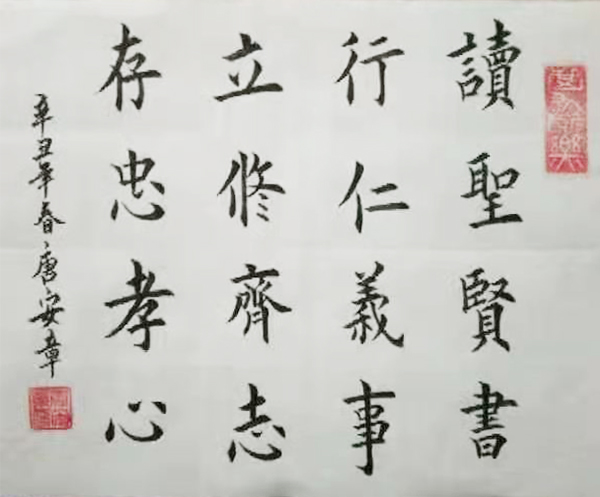 讀聖賢書
行仁義事
立脩齊志
存忠孝心
辛丑年春唐安章